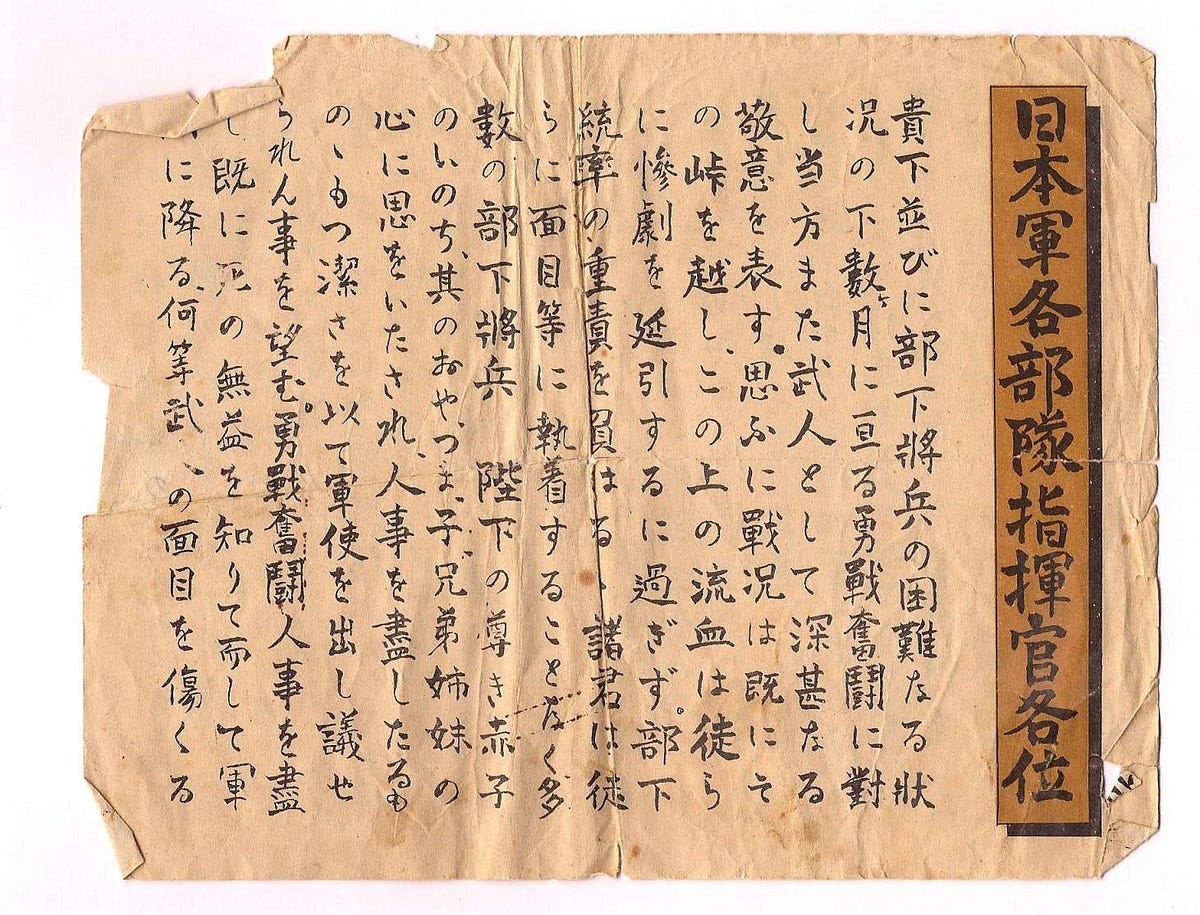 日本軍各部隊指揮官各位
貴下並びに部下將兵の困難なる狀
況の下數ヶ月に亘る勇戰奮鬪に對
し当方また武人として深甚なる
敬意を表す。思ふに戰況は既にそ
の峠を越し、この上の流血は徒ら
に慘劇を延引するに過ぎず。部下
統率の重責を負はるゝ諸君は徒
らに面目等に執着することなく多
數の部下將兵 陛下の尊き赤子
のいのち、其のおや、つま、子、兄弟姉妹の
心に思をいたされ、人事を盡したるも
のゝもつ潔さを以て軍使を出し議せ
られん事を望む。勇戰奮鬪人事を盡
し既に死の無益を知りて而して軍
に降る、何等武 の面目を傷くる